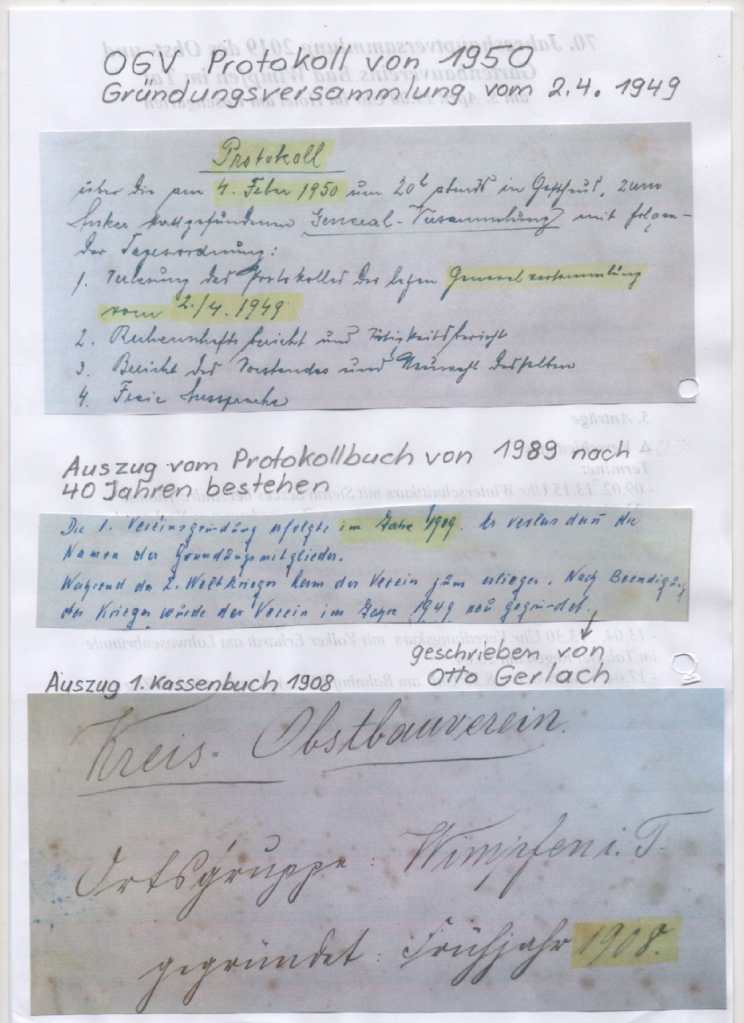 OGV Protokoll von 1950
Gründungsversammlung vom 2.4. 1949
Protokoll
über die am 4. Feber 1950 um 20h abends im Gasthaus, zum
Anker stattgefundenen General-Versammlung mit folgen-
der Tagesordnung:
1. Verlesung des Protokolles der letzten Generalversammlung
vom 2./4. 1949
2. Rechenschaftsbericht und Tätigkeitsbericht
3. Bericht des Vorstandes und Neuwahl desselben
4. Freie Aussprache
Auszug vom Protokollbuch von 1989 nach
40 Jahren bestehen
Die 1. Vereinsgründung erfolgte im Jahre 1909. Er verlas dann die
Namen der Gründungsmitglieder.
Während des 2. Weltkrieges kam der Verein zum erliegen. Nach Beendigung
des Krieges wurde der Verein im Jahre 1949 neu gegründet.
geschrieben von
Otto Gerlach
Auszug 1. Kassenbuch 1908
Kreis- Obstbauverein.
Ortsgruppe: Wimpfen i. T.
gegründet: Frühjahr 1908.